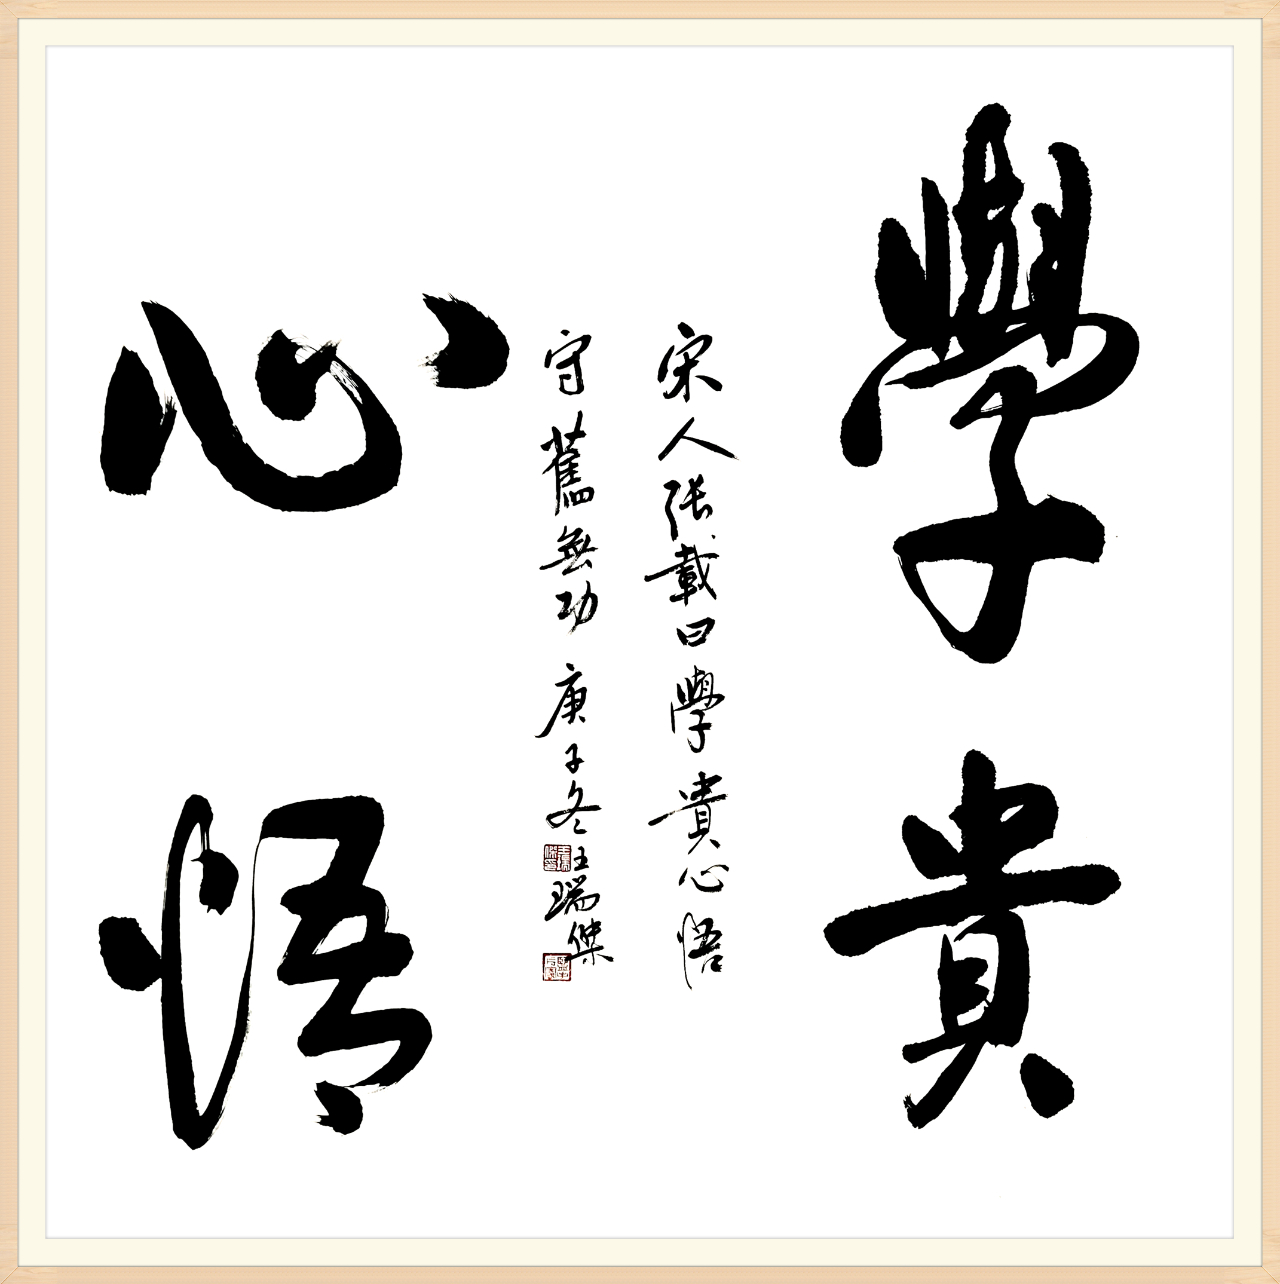 學貴
宋人張載曰學貴心悟
守舊無功 庚子冬王瑞傑
心悟